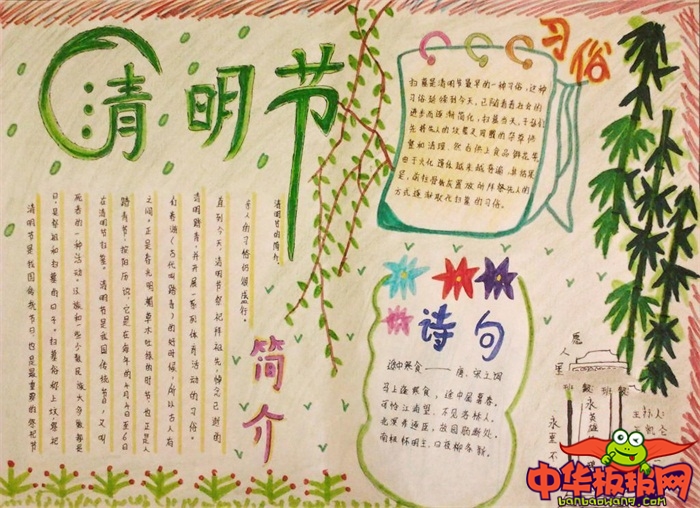 清明节
习俗
扫墓是清明节最早的一种习俗,这种
习俗延续到今天,已随着社会的
进步而逐渐简化,扫墓当天,子孙们
先将先人的坟墓及周围的杂草修
整和清理,然后供上食品鲜花等
由于火化遗体越来越普遍,其结果
是,前往骨灰置放地拜祭先人的
方式逐渐取代扫墓的习俗。
清明节的简介。
亲人的习俗仍很盛行。
直到今天,清明节祭祀拜祖先,悼念已逝的
清明踏青,并开展一系列体育活动的习俗。
们春游(古代叫踏青)的好时候,所以古人有
之间。正是春光明媚草木吐绿的时节,也正是人
踏青节,按阳历说,它是在每年的4月4日至6日
在清明节扫墓。清明节是我国传统节,又叫
死者的一种活动。汉族和一些少数民族大多数都是
日,是祭祖和扫墓的日子。扫墓俗称上坟,祭祀
清明节是我国的传统节日,也是最重要的祭祀节
简介
诗句
途中寒食——唐、宋之问
马上逢寒食,途中属暮春。
可怜江浦望,不见洛桥人。
北极怀明主,
故园肠断处,日夜柳条新。
愿
人
里
班
班
永
英雄
永垂不
中华板报网
banbaowang.com